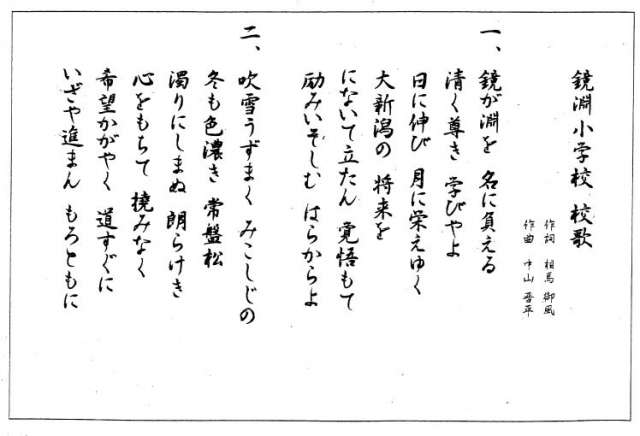 鏡淵小学校 校歌
作詞 相馬 御風
作曲 中山 晋平
一、鏡が淵を 名に負える
清く尊き 学びやよ
日に伸び 月に栄えゆく
大新潟の 将来を
にないて立たん 覚悟もて
励みいそしむ はらからよ
二、吹雪うずまく みこしじの
冬も色濃き 常盤松
濁りにしまぬ 朗らけき
心をもちて 撓みなく
希望かがやく 道すぐに
いざや進まん もろともに